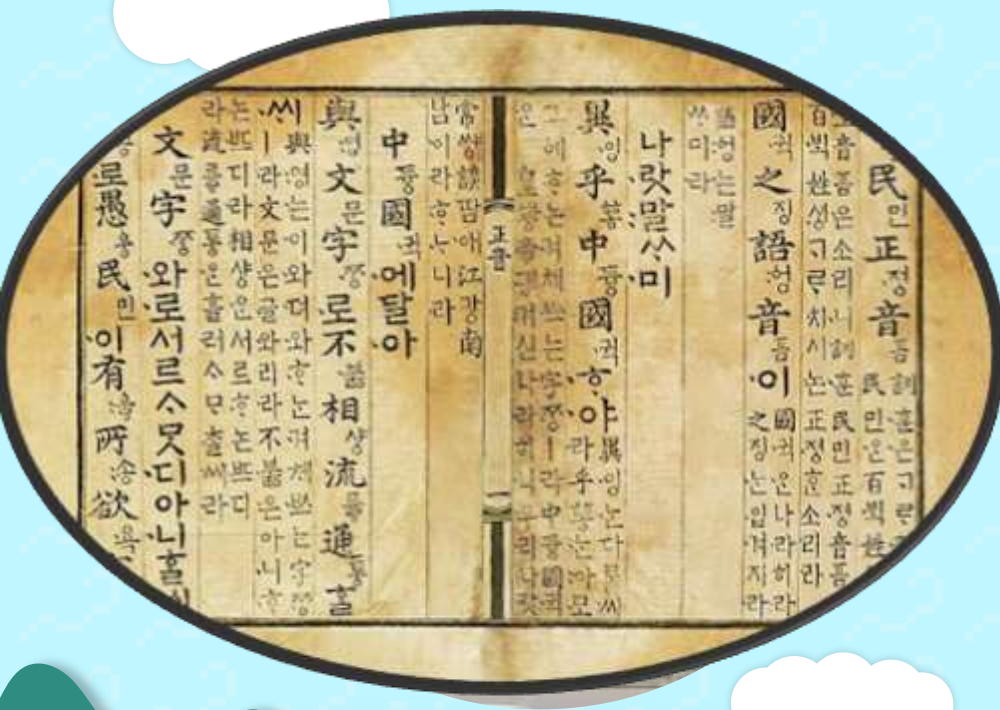 民민正정音흠 訓훈은ᄀᆞᄅ
民민은百ᄇᆡᆨ姓
音흠은소리니訓훈民민正정音흠
百ᄇᆡᆨ姓셩ᄀᆞᄅ치시논正정훈소리라
國귁之징語엉音흠이 國귁은나라히라
之징ᄂᆞᆫ입겨지라
語엉는말
ᄊᆞ미라
나랏말ᄊᆞ미
異잉乎ᅘᅩᆼ中듕國귁ᄒᆞ야 異잉ᄂᆞᆫ다ᄅᆞᆯ씨
라乎ᅘᅩᆼᄂᆞᆫ아모
그ᅌᅦᄒᆞ논겨체ᄡᅳ는字ᄍᆞᆼㅣ라中듕國귁
은皇황帝뎽겨신나라히니우리나랏
正音
一
常썅談땀애江강南
남이라ᄒᆞᄂᆞ니라
中듕國귁에달아
與영文문字ᄍᆞᆼ로不붏相샹流륳通통ᄒᆞᆯ
ᄊᆡ 與영는이와뎌와ᄒᆞ는겨체ᄡᅳ는字ᄍᆞᆼ
ㅣ라文문은글와리라不붏은아니ᄒᆞ
논ᄠᅳ디라相샹ᄋᆞᆫ서르ᄒᆞ논ᄠᅳ디
라流륳通통ᄋᆞᆫ흘러ᄉᆞᄆᆞᄎᆞᆯ씨라
文문字ᄍᆞᆼ와로서르ᄉᆞᄆᆞᆺ디아니ᄒᆞᆯᄊᆡ
로愚웅民민이有ᅌᅮᇢ所송欲욕